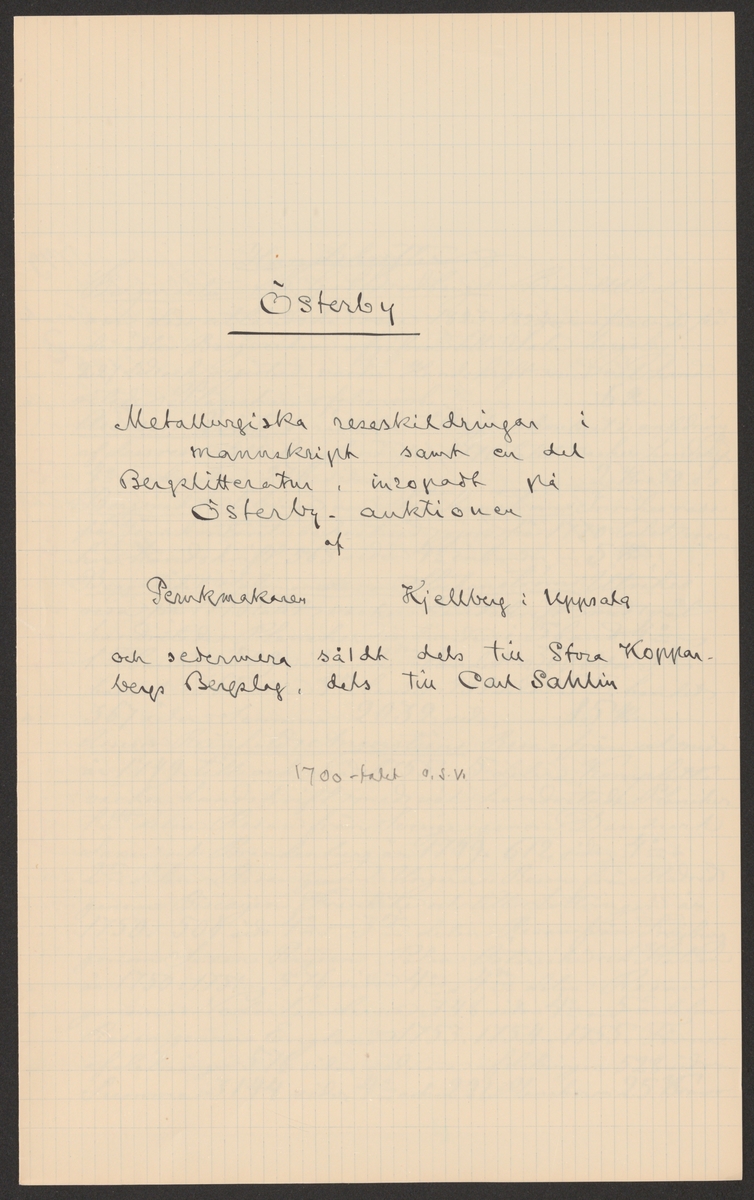 Österby
Metallurgiska reseskildringar i
mannskript samt en del
Bergslitteratur, inropadt på
Österby-auktionen
af
Perukmakaren Kjellberg i Uppsala
och sedermera såldt dels till Stora Koppar-
bergs Bergslag, dels till Carl Sahlin
1700-talet o.s.v.